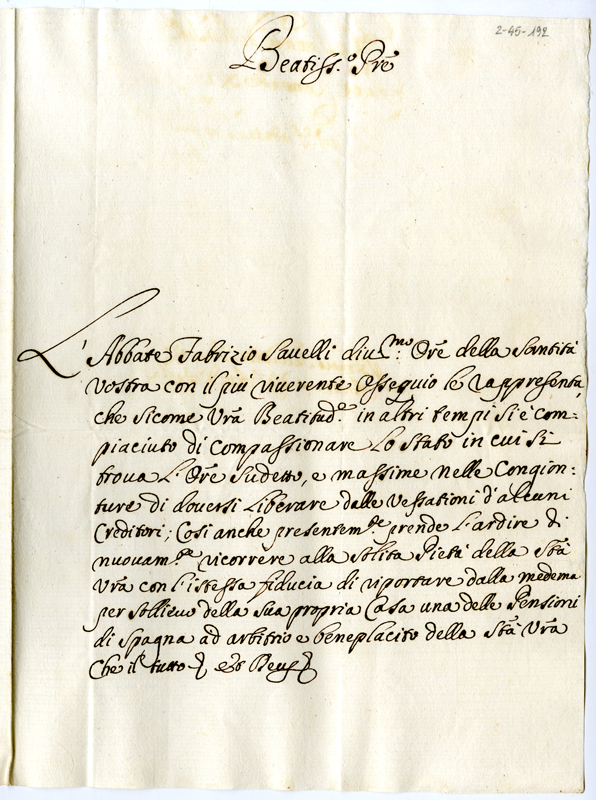 2-45-192
Beatiss.º Pre
L'Abbate Fabrizio Savelli diu.mo: Ore della Santità
Vostra con il più riverente Ossequio le rappresenta,
che sicome Vra Beatitud.e in altri tempi si è com-
piaciuto di compassionare lo stato in cui si
troua l'Ore sudetto, e massime nelle Congion:
ture di douersi liberare dalle vessationi d'alcuni
Creditori; Così anche presentem.te prende l'ardire di
nuouam.te ricorrere alla solita Pietà della Stà
Vra con l'istessa fiducia di riportare dalla medema
per sollieuo della sua propria Casa una delle Pensioni
di Spagna ad arbitrio e beneplacito della Stà Vra
Che il tutto